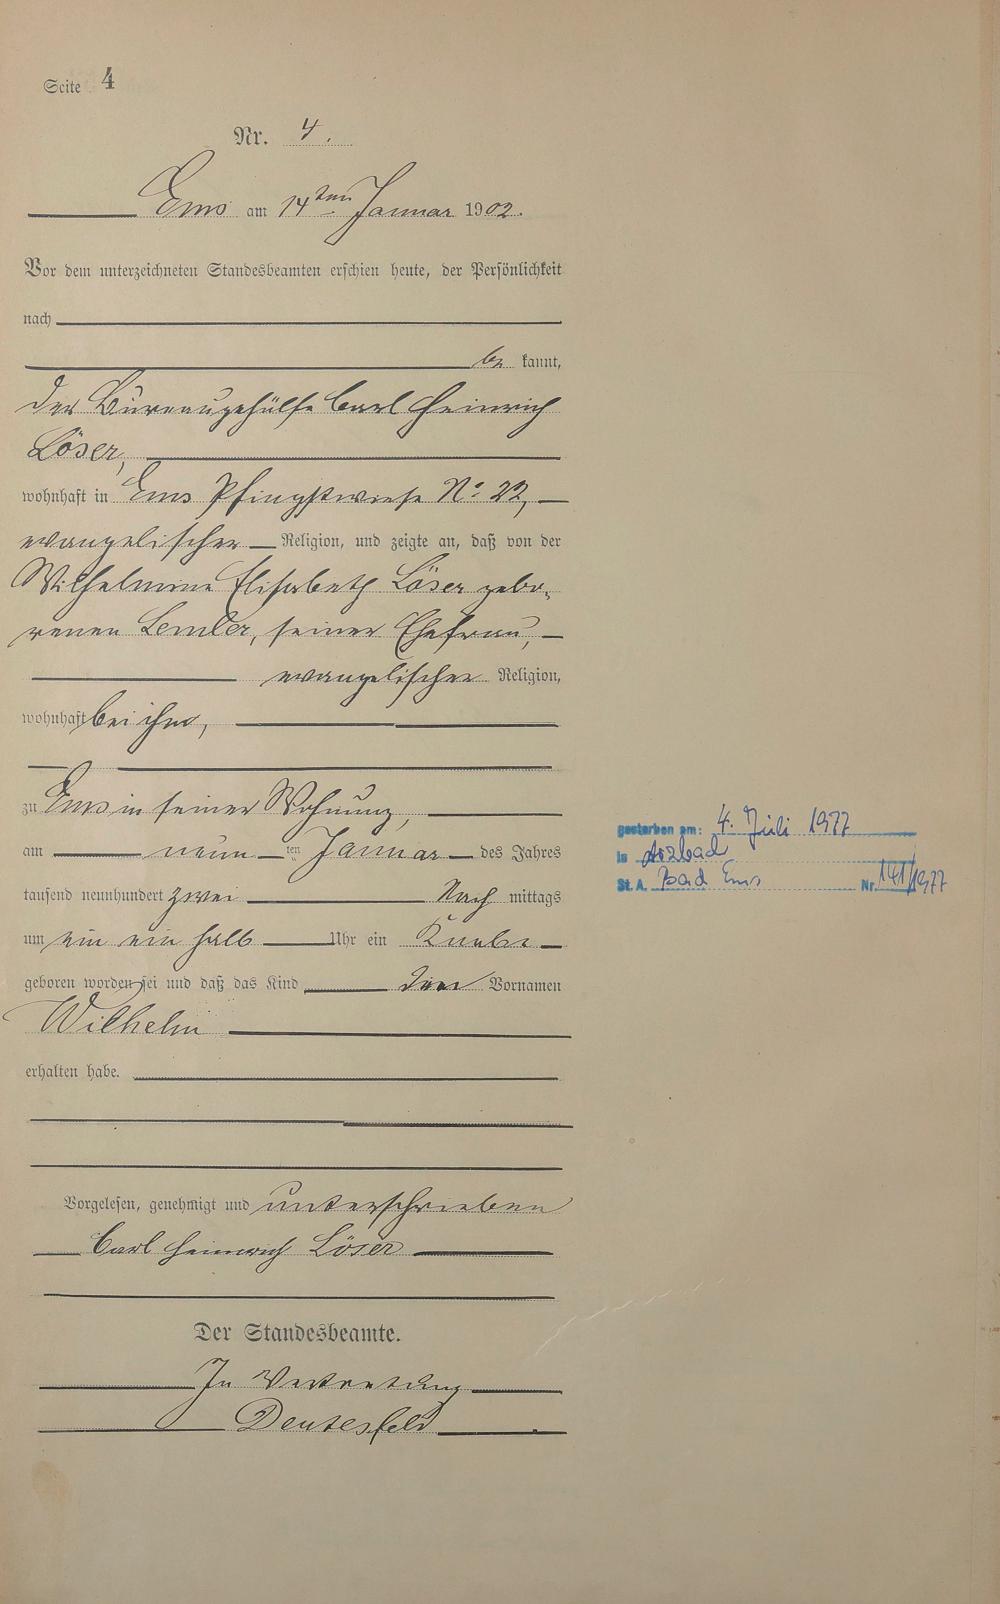 Seite 4
Nr. 4.
Ems am 14ten Januar 1902.
Vor dem unterzeichneten Standesbeamten erschien heute, der Persönlichkeit
nach
be kannt,
der Büreaugehülfe Carl Heinrich
Löser,
wohnhaft in Ems Pfingstwiese No 22,
evangelischer Religion, und zeigte an, daß von der
Wilhelmine Elisabeth Löser gebo-
renen Lemler, seiner Ehefrau,
evangelischer Religion,
wohnhaft bei ihm,
zu Ems in seiner Wohnung,
am neun ten Januar des Jahres
tausend neunhundert zwei Nach mittags
um ein ein halb Uhr ein Knabe
geboren worden sei und daß das Kind den Vornamen
Wilhelm
erhalten habe.
Vorgelesen, genehmigt und unterschrieben
Carl Heinrich Löser
Der Standesbeamte.
In Vertretung
gestorben am: 4. Juli 1977
in Arzbach
St. A. Bad Ems Nr. 141/1977